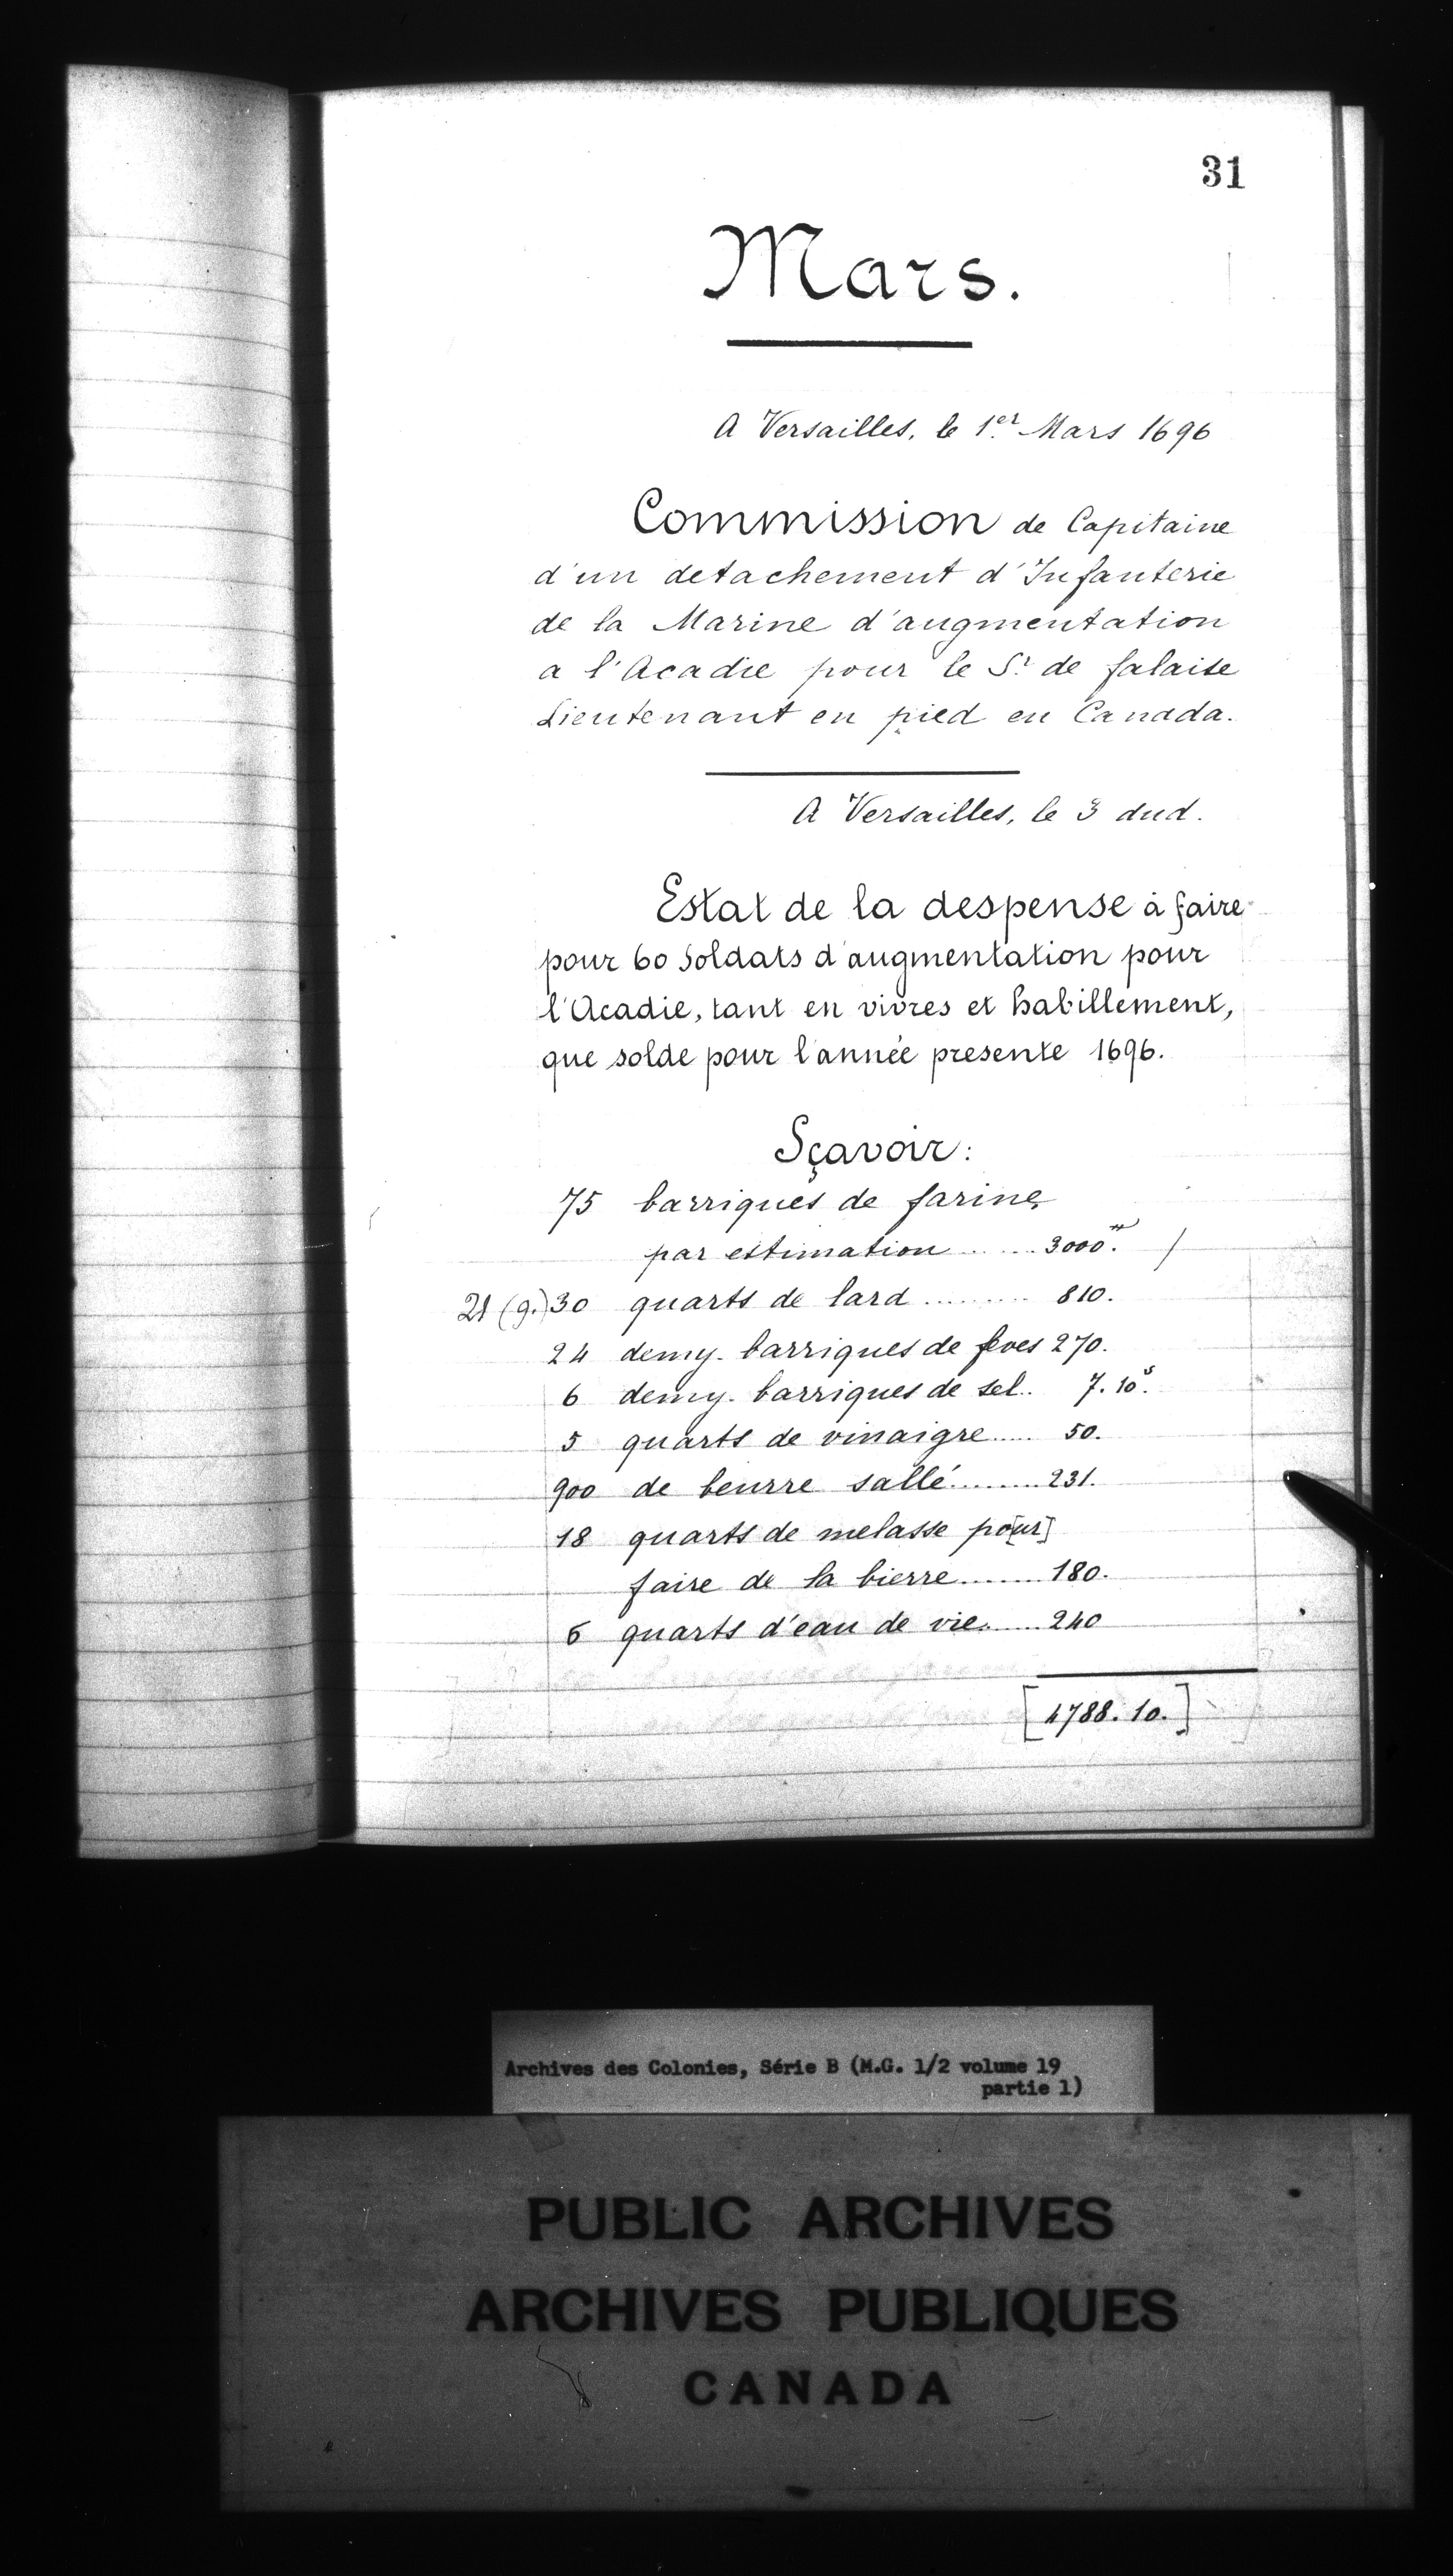 31
Mars.
A Versailles, le 1er Mars 1696
Commission de Capitaine
d'un detachement d'Infanterie
de la Marine d'augmentation
a l'Acadie pour le Sr de falaise
Lieutenant en pied en Canada.
A Versailles, le 3 dud.
Estat de la despense à faire
pour 60 Soldats d'augmentation pour
l'Acadie, tant en vivres et habillement,
que solde pour l'année presente 1696.
Sçavoir:
75 barriques de farine
par estimation ...... 3000.tt /
21 (g.) 30 quarts de lard ......... 810.
24 demy-barriques de feves 270.
6 demy-barriques de sel.. 7.10s.
5 quarts de vinaigre..... 50.
900 de beurre sallé.........231.
18 quarts de melasse po[ur]
faire de la bierre.......180.
6 quarts d'eau de vie......240
[4788.10.]
Archives des Colonies, Série B (M.G. 1/2 volume 19
partie 1)
PUBLIC ARCHIVES
ARCHIVES PUBLIQUES
CANADA